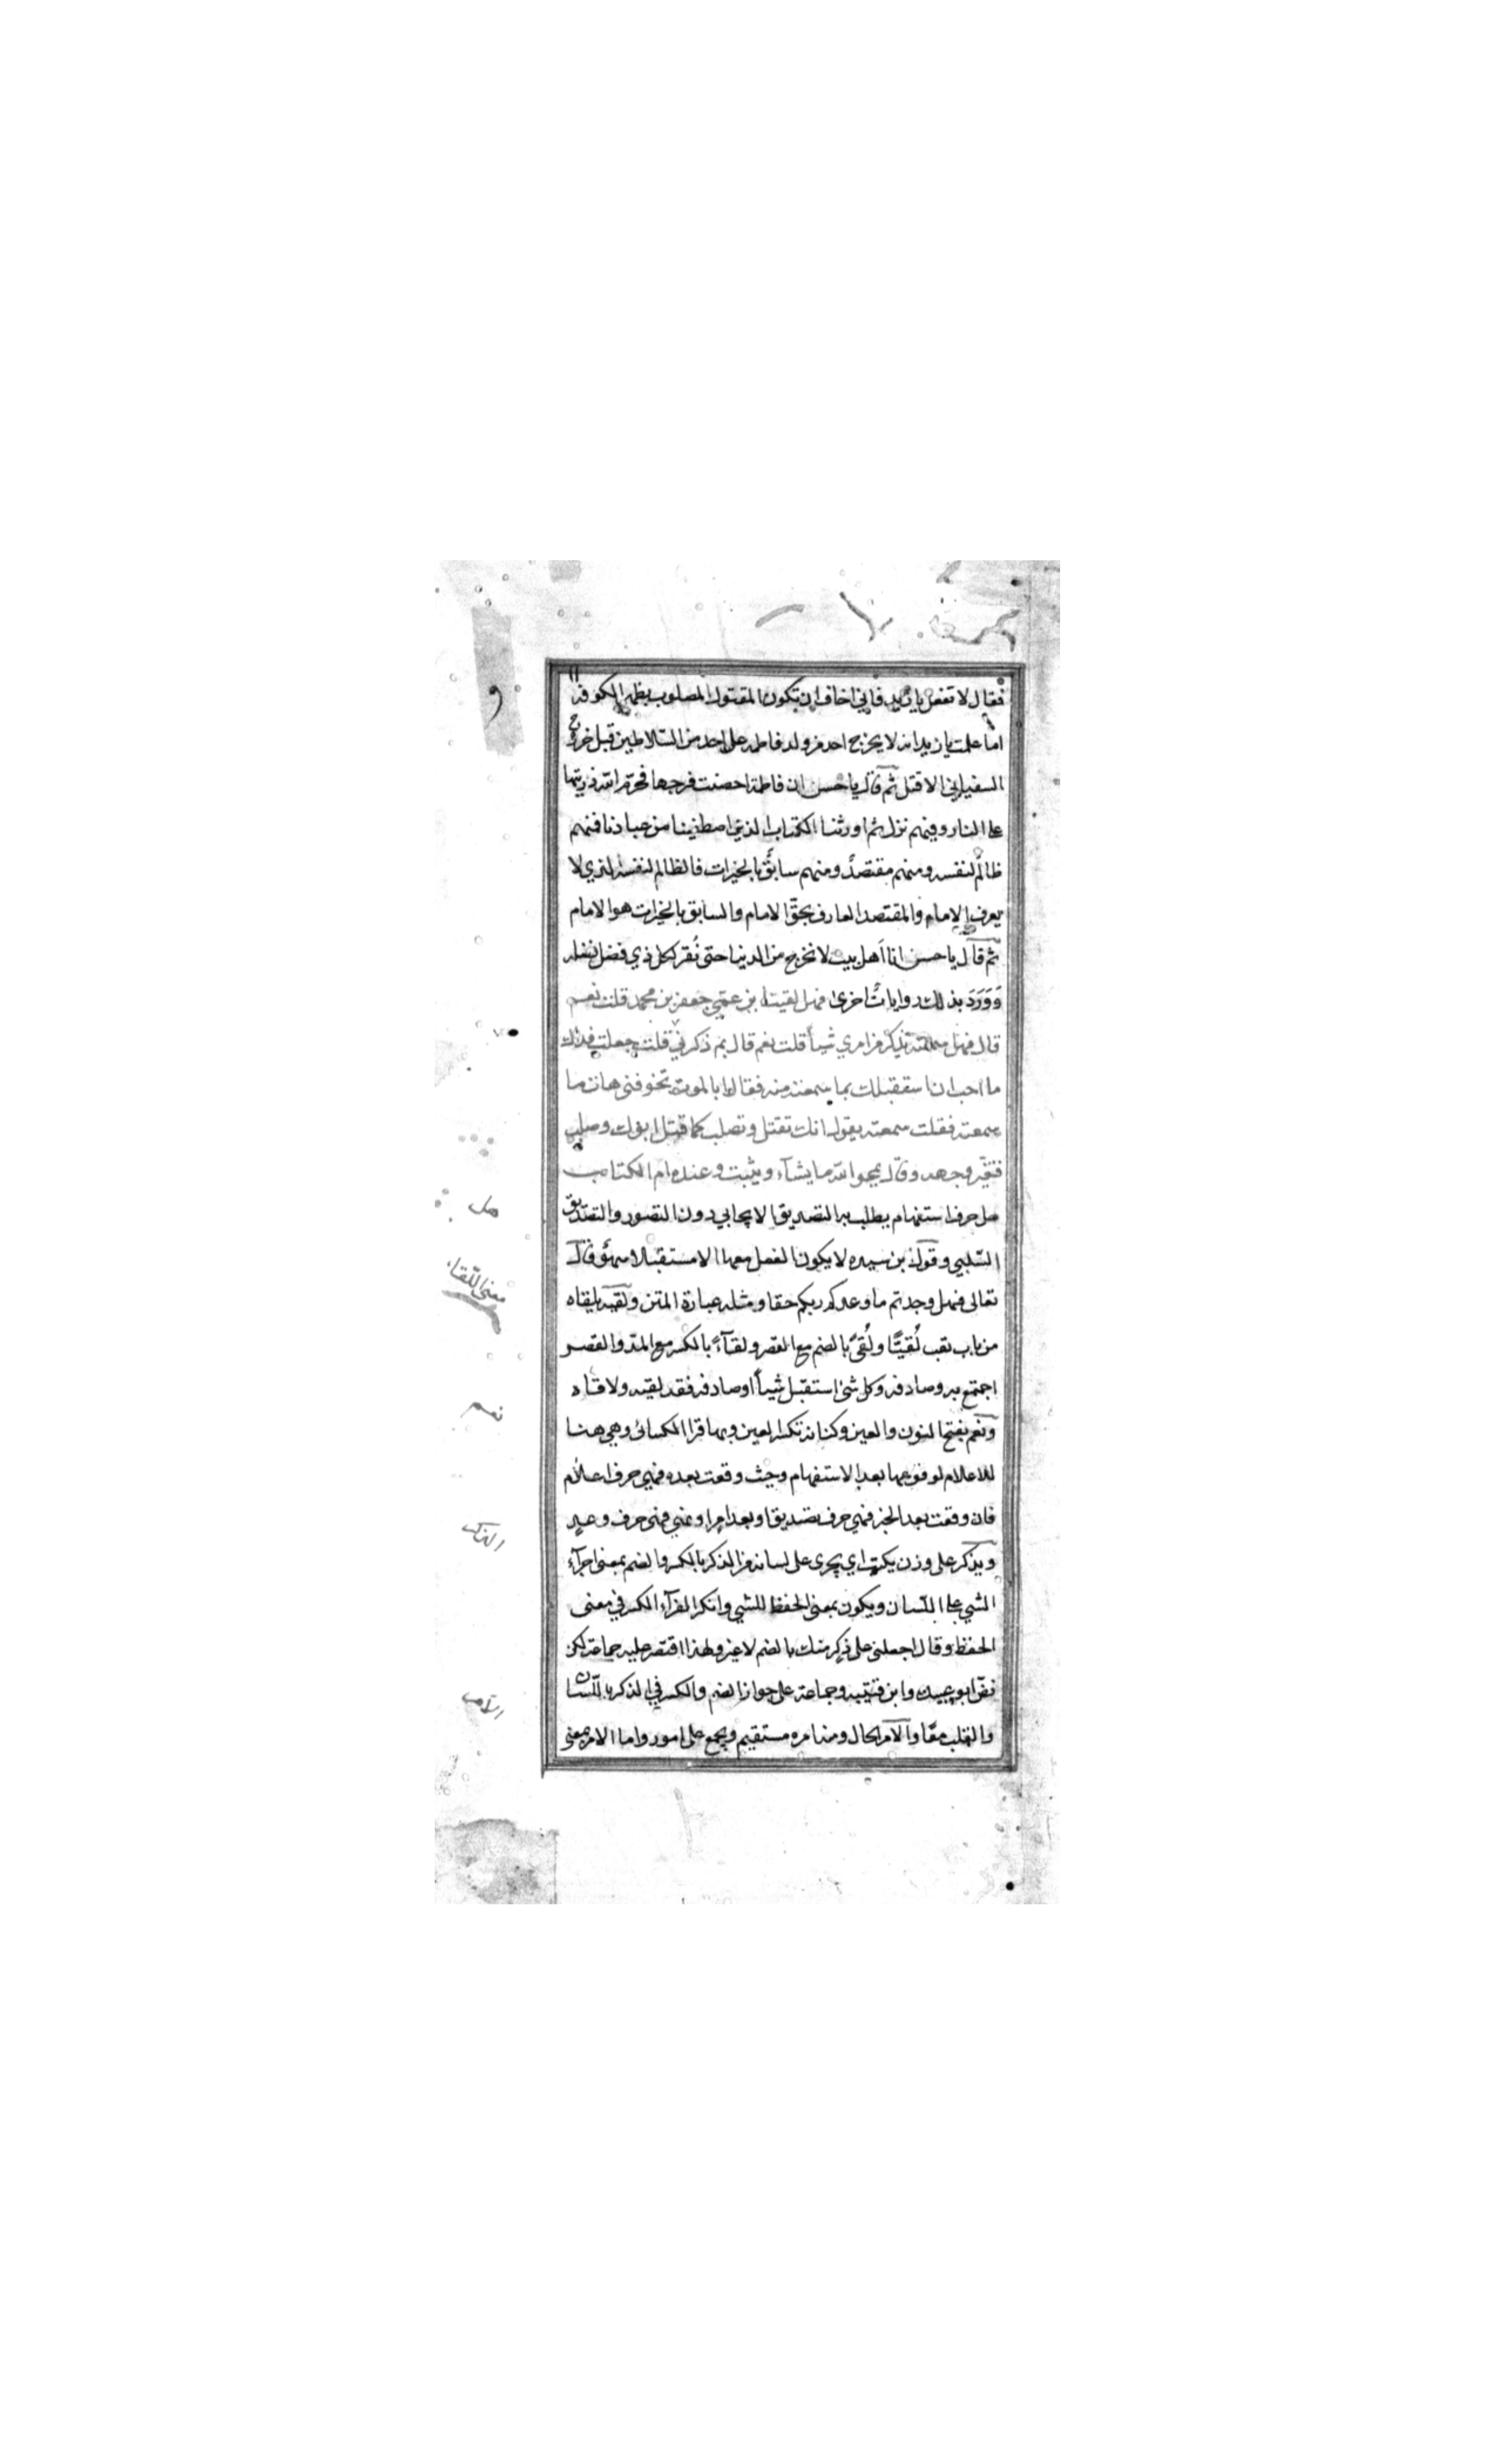 فقال لا تفعل يا زيد فاني اخاف ان تكون المقتول المصلوب بظهر الكوفة
اما علمت يا زيد انه لا يخرج احد من ولد فاطمة على احد من السّلاطين قبل خروج
السفياني الا قتل ثم قال يا حسن ان فاطمة احصنت فرجها فحرّم الله ذريتها
على النار وفيهم نزل ثم اورثنا الكتاب الذين اصطفينا من عبادنا فمنهم
ظالمٌ لنفسه ومنهم مقتصدٌ ومنهم سابقٌ بالخيرات فالظالم لنفسه الذي لا
يعرف الامام والمقتصد العارف بحقّ الامام والسابق بالخيرات هو الامام
ثم قال يا حسن انا اهل بيت لا نخرج من الدنيا حتى نُقر لكل ذي فضل بفضله
وَوَرَدَ بذلك روايات اخرى فهل لقيت ابن عمّي جعفر بن محمد قلت نعم
قال فهل سمعته يذكر من امري شيأ قلت نعم قال بم ذكرني قلت جعلت فداك
ما احب ان استقبلك بما سمعته منه فقال ابالموت تخوفني هات ما
سمعته فقلت سمعته يقول انك تقتل وتصلب كما قتل ابوك وصلب
فتغيّر وجهه وقال يمحوا الله ما يشآء ويثبت وعنده ام الكتاب
هل حرف استفهام يطلب به التصديق الايجابي دون التصور والتصديق
السّلبي وقول ابن سيده لا يكون الفعل معها الا مستقبلا سهوٌ قال
تعالى فهل وجدتم ما وعدكم ربكم حقا ومثله عبارة المتن ولقيه يلقاه
من باب تعب لُقيًّا ولُقىً بالضم مع القصر ولقآءً بالكسر مع المدّ والقصر
اجتمع به وصادفه وكل شئ استقبل شيأ او صادفه فقد لقيه ولاقاه
ونعم بفتح النون والعين وكنانة تكسر العين وبها قرا الكسائى وهي هنا
للاعلام لوقوعها بعد الاستفهام وحيث وقعت بعده فهي حرف اعلام
فان وقعت بعد الخبر فهي حرف تصديق او بعد امر او نهي فهي حرف وعد
ويذكر على وزن يكتب اي يجرى على لسانه من الذكر بالكسر والضم بمعنى اجرآء
الشي على اللسان ويكون بمعنى الحفظ للشي وانكر الفرآء الكسر في معنى
الحفظ وقال اجعلني على ذكر منك بالضم لا غير ولهذا اقتصر عليه جماعة لكن
نصّ ابو عبيدة وابن قتيبه وجماعة على جواز الضم والكسر في الذكر باللّسان
والقلب معًا والامر الحال ومنه امره مستقيم ويجمع على امور واما الامر بمعنى
هل
معنى اللّقاء
نعم
الذكر
الامر